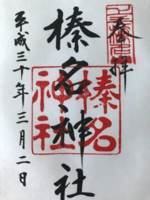 奉拝
榛名神社
榛名神社
平成三十年三月二日